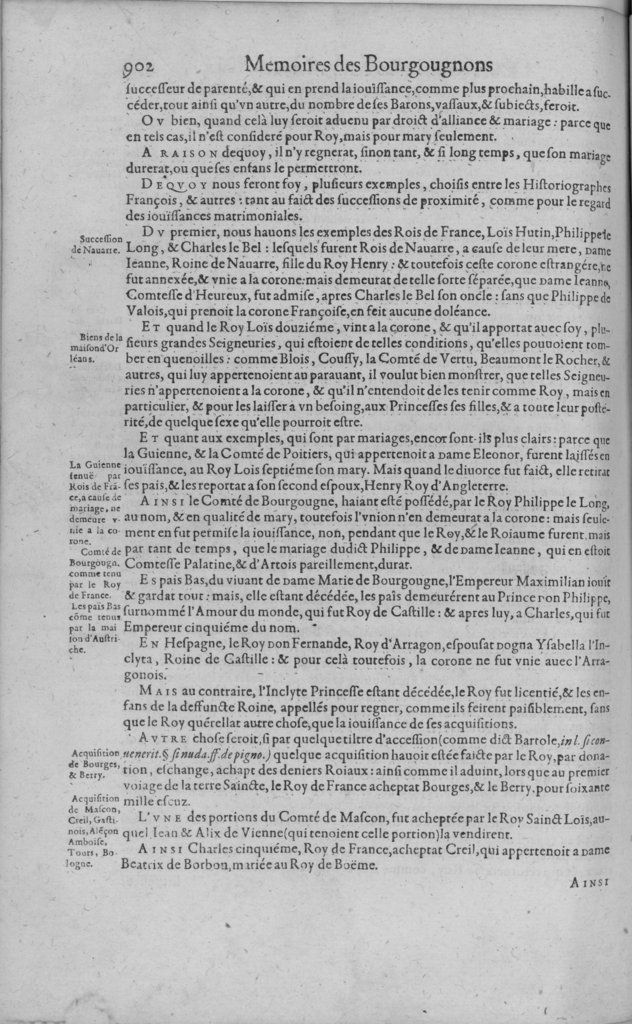 902 Memoires des Bourgougnons
successeur de parenté,& qui en prend la iouïssance,comme plus prochain,habille a suc-
céder,tout ainsi qu'vn autre,du nombre de ses Barons,vassaux,& subiects,feroit.
OV bien, quand celà luy seroit aduenu par droict d'alliance & mariage : parce que
en tels cas,il n'est consideré pour Roy,mais pour mary seulement.
A RAISON dequoy, il n'y regnerat, sinon tant, & si long temps, que son mariage
durerat,ou que ses enfans le permettront.
DEQVOY nous feront foy, plusieurs exemples, choisis entre les Historiographes
François, & autres : tant au faict des successions de proximité, comme pour le regard
des iouïssances matrimoniales.
Succession
de Nauarre.
DV premier, nous hauons les exemples des Rois de France, Loïs Hutin, Philippe le
Long, & Charles le Bel : lesquels furent Rois de Nauarre, a cause de leur mere, DAME
Ieanne, Roine de Nauarre, fille du Roy Henry : & toutefois ceste corone estrangére,ne
fut annexée,& vnie a la corone:mais demeurat de telle sorte séparée,que DAME Ieanne,
Comtesse d'Heureux, fut admise, apres Charles le Bel son oncle : sans que Philippe de
Valois,qui prenoit la corone Françoise,en feit aucune doléance.
Biens de la
maison d'Or
léans.
ET quand le Roy Loïs douziéme, vint a la corone, & qu'il apportat auec soy, plu-
sieurs grandes Seigneuries, qui estoient de telles conditions, qu'elles pouuoient tom-
ber en quenoilles : comme Blois, Coussy, la Comté de Vertu, Beaumont le Rocher,&
autres, qui luy appertenoient au parauant, il voulut bien monstrer, que telles Seigneu-
ries n'appertenoient a la corone, & qu'il n'entendoit de les tenir comme Roy, mais en
particulier, & pour les laisser a vn besoing,aux Princesses ses filles,& a toute leur posté-
rité,de quelque sexe qu'elle pourroit estre.
La Guienne
tenuë par
Rois de Frā-
ce,a cause de
mariage, ne
demeure v-
nie a la co-
rone.
ET quant aux exemples, qui sont par mariages,encor sont-ils plus clairs : parce que
la Guienne, & la Comté de Poitiers, qui appertenoit a DAME Eleonor, furent laissés en
iouïssance, au Roy Lois septiéme son mary. Mais quand le diuorce fut faict, elle retirat
ses païs,& les reportat a son second espoux,Henry Roy d'Angleterre.
Comté de
Bourgougn.
comme tenu
par le Roy
de France.
AINSI le Comté de Bourgougne, haiant esté possédé,par le Roy Philippe le Long,
au nom, & en qualité de mary, toutefois l'vnion n'en demeurat a la corone : mais seule-
ment en fut permise la iouïssance, non, pendant que le Roy,& le Roiaume furent,mais
par tant de temps, que le mariage dudict Philippe, & de DAME Ieanne, qui en estoit
Comtesse Palatine,& d'Artois pareillement,durar.
Les païs Bas
cōme tenus
par la mai
son d'Austri-
che.
ES païs Bas,du viuant de DAME Marie de Bourgougne,l'Empereur Maximilian iouit
& gardat tout : mais, elle estant décédée, les païs demeurérent au Prince DON Philippe,
surnommé l'Amour du monde, qui fut Roy de Castille : & apres luy, a Charles,qui fut
Empereur cinquiéme du nom.
EN Hespagne, le Roy DON Fernande, Roy d'Arragon,espousat DOGNA Ysabella l'In-
clyta, Roine de Castille : & pour celà toutefois, la corone ne fut vnie auec l'Arra-
gonois.
MAIS au contraire, l'Inclyte Princesse estant décédée,le Roy fut licentié,& les en-
fans de la deffuncte Roine, appellés pour regner, comme ils feirent paisiblement, sans
que le Roy quérellat autre chose,que la iouïssance de ses acquisitions.
Acquisition
de Bourges,
& Berry.
AVTRE chose seroit,si par quelque tiltre d'accession(comme dict Bartole,in l. si con-
uenerit.§ si nuda.ff.de pigno.) quelque acquisition hauoit estée faicte par le Roy,par dona-
tion, eschange, achapt des deniers Roiaux : ainsi comme il aduint, lors que au premier
voiage de la terre Saincte, le Roy de France acheptat Bourges,& le Berry,pour soixante
mille escuz.
Acquisition
de Mascon,
Creil, Gasti-
nois,Alēçon
Amboise,
Tours, Bo-
logne.
L'VNE des portions du Comté de Mascon, fut acheptée par le Roy Sainct Loïs,au-
quel Iean & Alix de Vienne(qui tenoient celle portion)la vendirent.
AINSI Charles cinquiéme, Roy de France,acheptat Creil,qui appertenoit a DAME
Beatrix de Borbon,mariée au Roy de Boëme.
AINSI